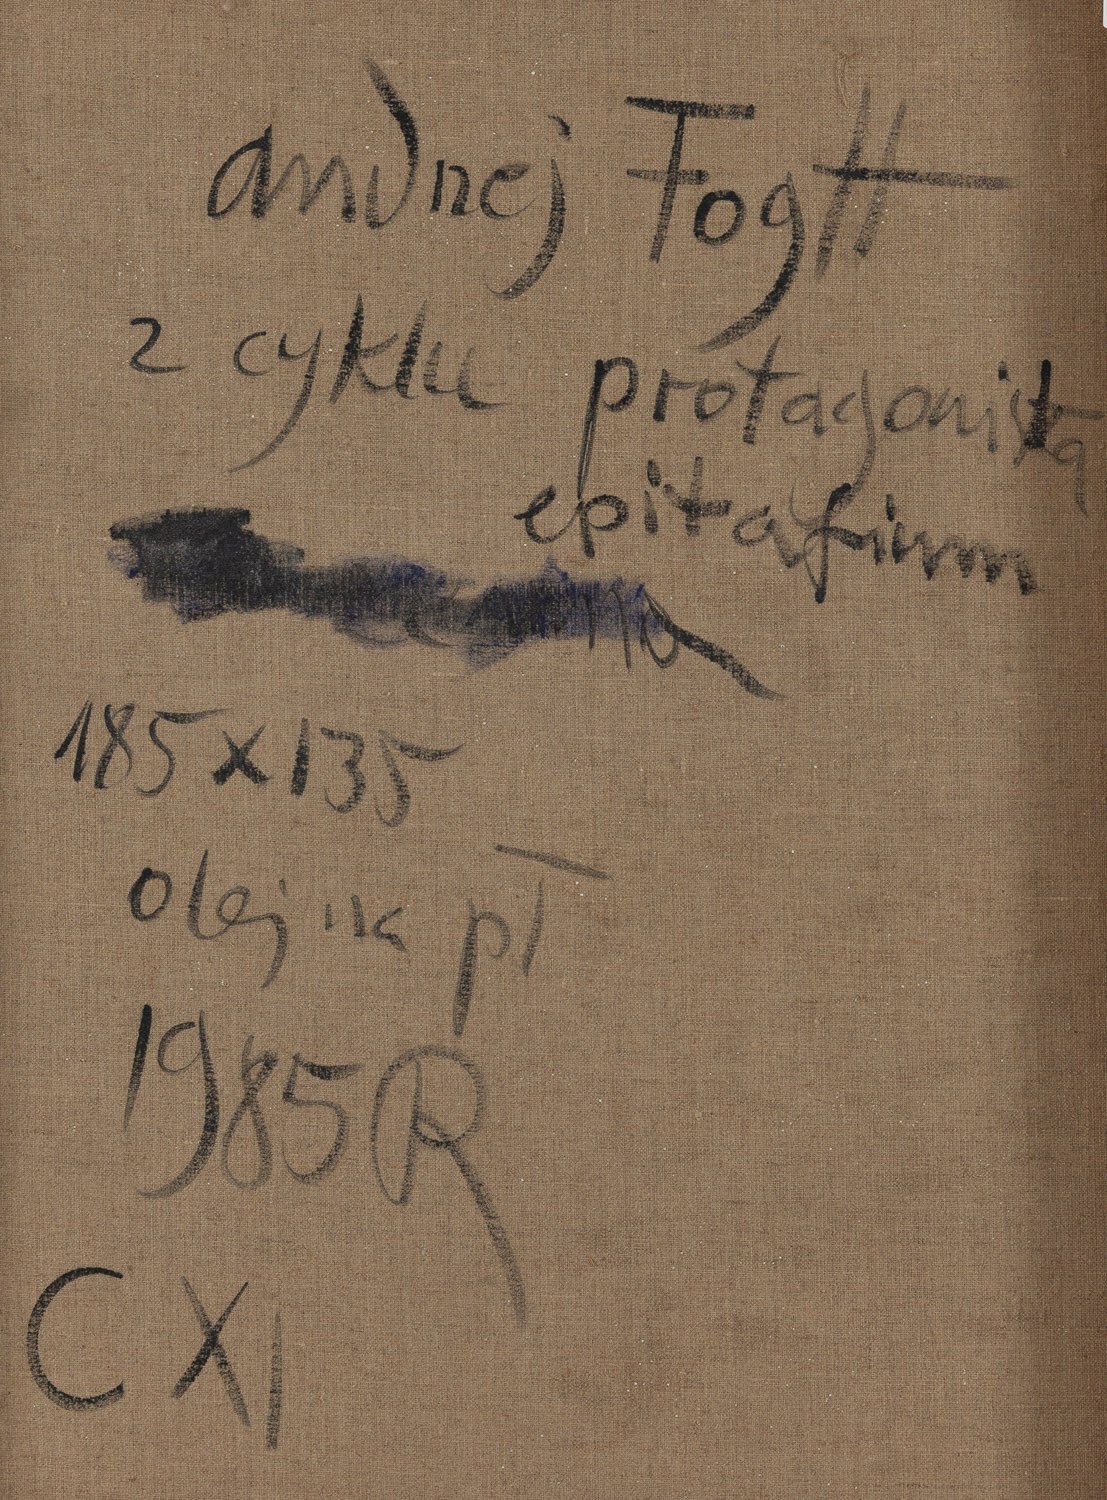 andrzej Fogtt
z cyklu protagonista
epitafium
185x135
olej na pł
1985R
CXI